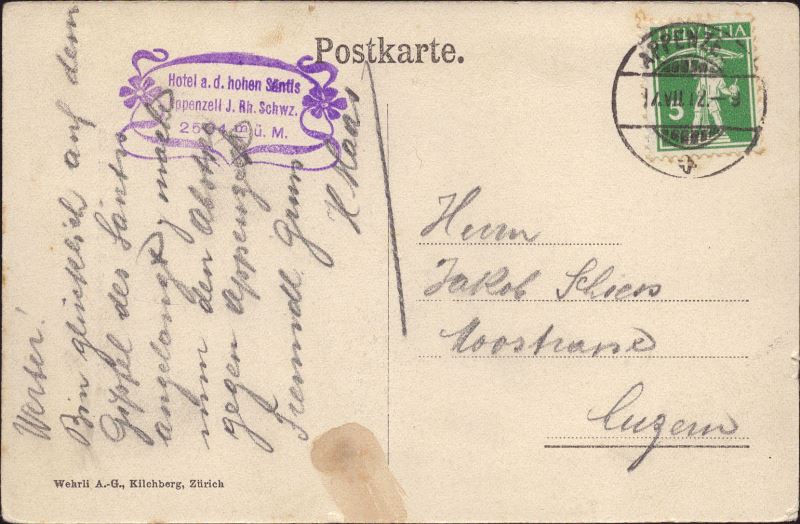 Postkarte.
Hotel a. d. hohen Säntis
Appenzell J. Rh. Schwz.
25 4 m ü. M.
HELVETIA
5
APPENZELL
17.VII.12.-9
Werter!
Bin glücklich auf dem
Gipfel des Säntis
angelangt, mache
nun den Abstieg
gegen Appenzell
Freundl. Gruss
H. Haas
Herrn
Jakob Schiess
Moostrasse
Luzern
Wehrli A.-G., Kilchberg, Zürich